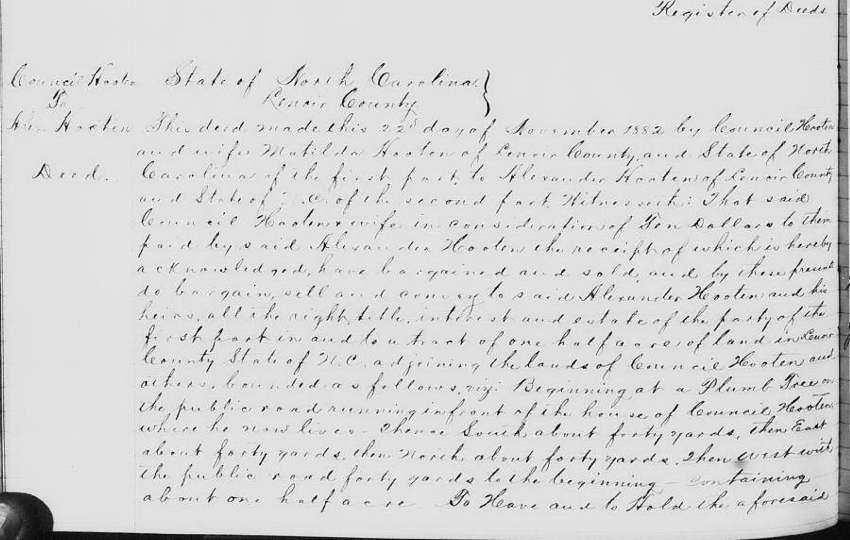 Register of Deeds
Council Hooten State of North Carolina
To Lenoir County
Alex Hooten This deed made this 22d day of November 1882 by Council Hooten
and wife Matilda Hooten of Lenoir County, and State of North
Deed. Carolina of the first part, to Alexander Hooten of Lenoir County
and State of N.C. of the second part, Witnesseth: That said
Council Hooten & wife in consideration of Ten Dollars to them
paid by said Alexander Hooten the receipt of which is hereby
acknowledged, have bargained and sold, and by these presents
do bargain, sell and convey to said Alexander Hooten and his
heirs, all the right, title, interest and estate of the party of the
first part in and to a tract of one half acre of land in Lenoir
County State of N.C. adjoining the lands of Council Hooten and
others, bounded as follows, viz: Beginning at a Plumb Tree on
the public road running in front of the house of Council Hooten
where he now lives - thence South about forty yards, then East
about forty yards, then North about forty yards, then West with
the public road forty yards to the beginning - containing
about one half acre To Have and to Hold the aforesaid